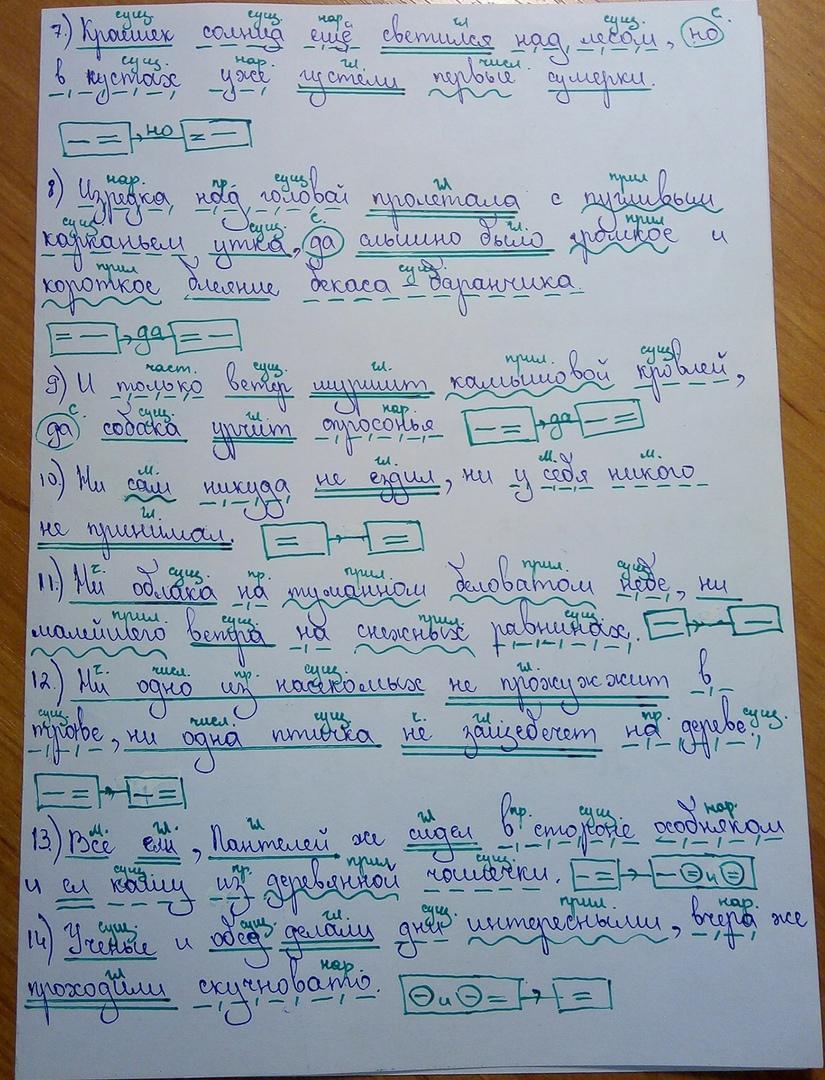 сущ. сущ. нар. гл. сущ. с.
7.) Краешек солнца ещё светился над лесом, но
сущ. нар. гл. числ. сущ.
в кустах уже густели первые сумерки.
но
нар. пр. сущ. гл прил
8) Изредка над головой пролетала с пугливым
сущ. сущ. с. гл. прил
карканьем утка, да слышно было громкое и
прил сущ.
короткое блеяние бекаса - баранчика.
да
част. сущ. гл. прил. сущ.
9) И только ветер шуршит камышовой кровлей,
с. сущ. гл. нар.
да собака урчит спросонья да
м. гл. м. м.
10.) Ни сам никуда не ездил, ни у себя никого
гл
не принимал.
ч. сущ. пр. прил. прил. сущ.
11.) Ни облака на туманном беловатом небе, ни
прил. сущ. прил. сущ.
малейшего ветра на снежных равнинах.
ч. числ. пр. сущ. гл.
12.) Ни одно из насекомых не прожужжит в
сущ. числ. сущ. ч. гл пр. сущ.
траве, ни одна птичка не защебечет на дереве.
м. гл. гл гл пр. сущ. нар.
13.) Все ели, Пантелей же сидел в стороне особняком
сущ. пр. прил сущ.
и ел кашу из деревянной чашечки. и
сущ сущ. гл. сущ. прил. нар.
14) Ученье и обед делали дни интересными, вчера же
гл нар.
проходили скучновато. и